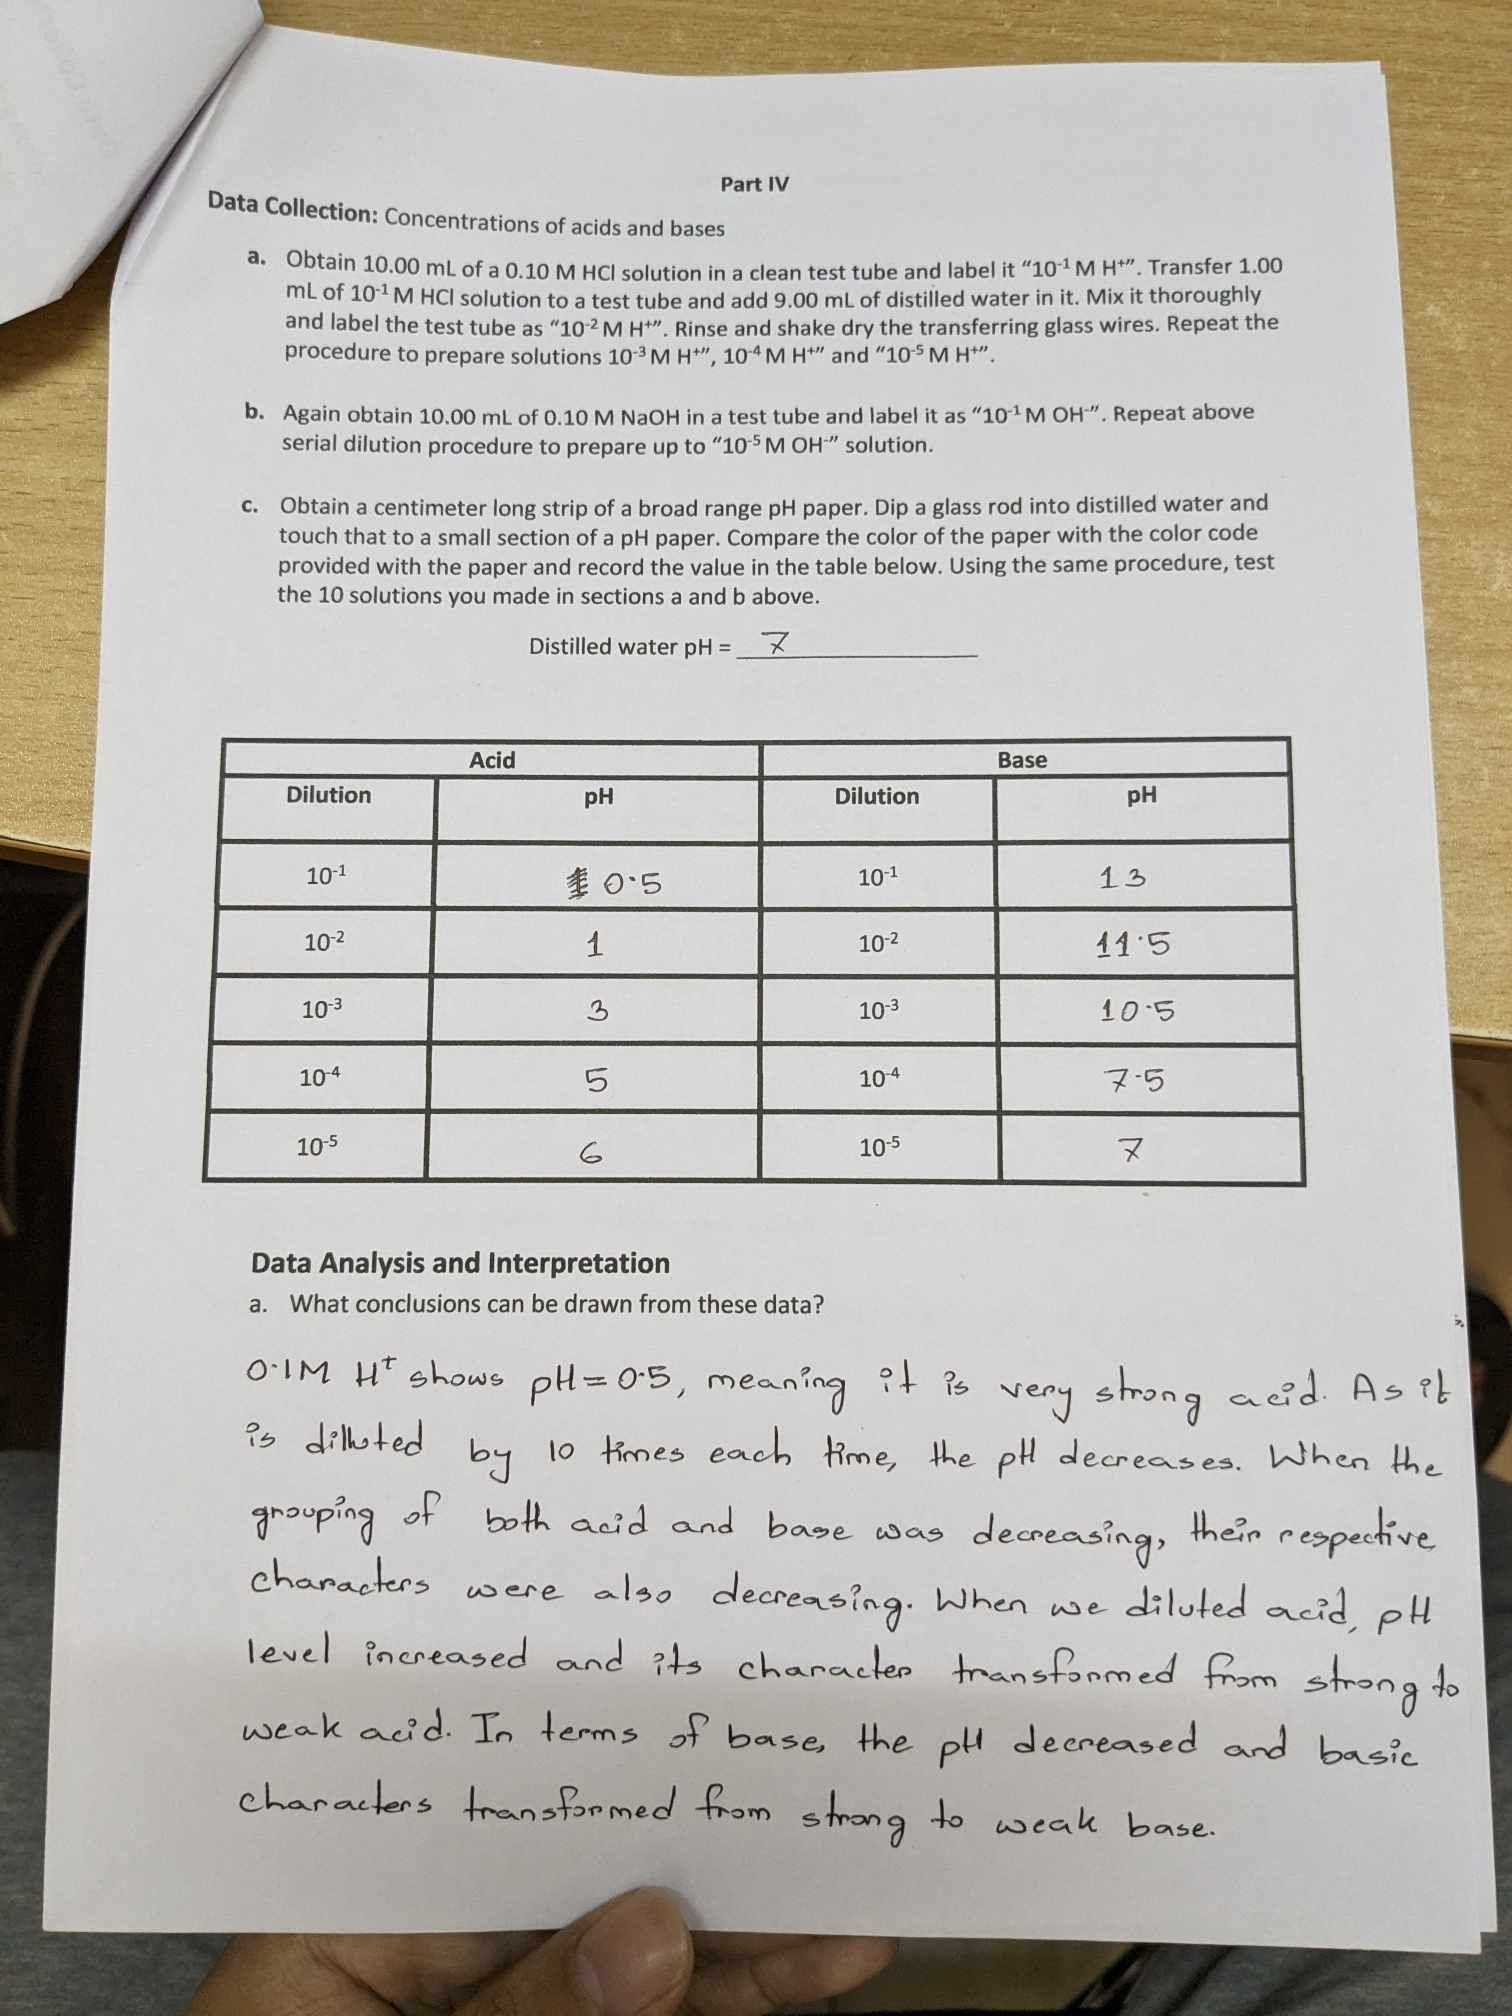 Part IV
Data Collection: Concentrations of acids and bases
a. Obtain 10.00 mL of a 0.10 M HCl solution in a clean test tube and label it “10⁻¹ M H⁺”. Transfer 1.00
mL of 10⁻¹ M HCl solution to a test tube and add 9.00 mL of distilled water in it. Mix it thoroughly
and label the test tube as “10⁻² M H⁺”. Rinse and shake dry the transferring glass wires. Repeat the
procedure to prepare solutions 10⁻³ M H⁺”, 10⁻⁴ M H⁺” and “10⁻⁵ M H⁺”.
b. Again obtain 10.00 mL of 0.10 M NaOH in a test tube and label it as “10⁻¹ M OH⁻”. Repeat above
serial dilution procedure to prepare up to “10⁻⁵ M OH⁻” solution.
c. Obtain a centimeter long strip of a broad range pH paper. Dip a glass rod into distilled water and
touch that to a small section of a pH paper. Compare the color of the paper with the color code
provided with the paper and record the value in the table below. Using the same procedure, test
the 10 solutions you made in sections a and b above.
Distilled water pH = 7
Acid Base
Dilution pH Dilution pH
10⁻¹ 0.5 10⁻¹ 13
10⁻² 1 10⁻² 11.5
10⁻³ 3 10⁻³ 10.5
10⁻⁴ 5 10⁻⁴ 7.5
10⁻⁵ 6 10⁻⁵ 7
Data Analysis and Interpretation
a. What conclusions can be drawn from these data?
0.1M H⁺ shows pH = 0.5, meaning it is very strong acid. As it
is dilluted by 10 times each time, the pH decreases. When the
grouping of both acid and base was decreasing, their respective
characters were also decreasing. When we diluted acid, pH
level increased and its character transformed from strong to
weak acid. In terms of base, the pH decreased and basic
characters transformed from strong to weak base.